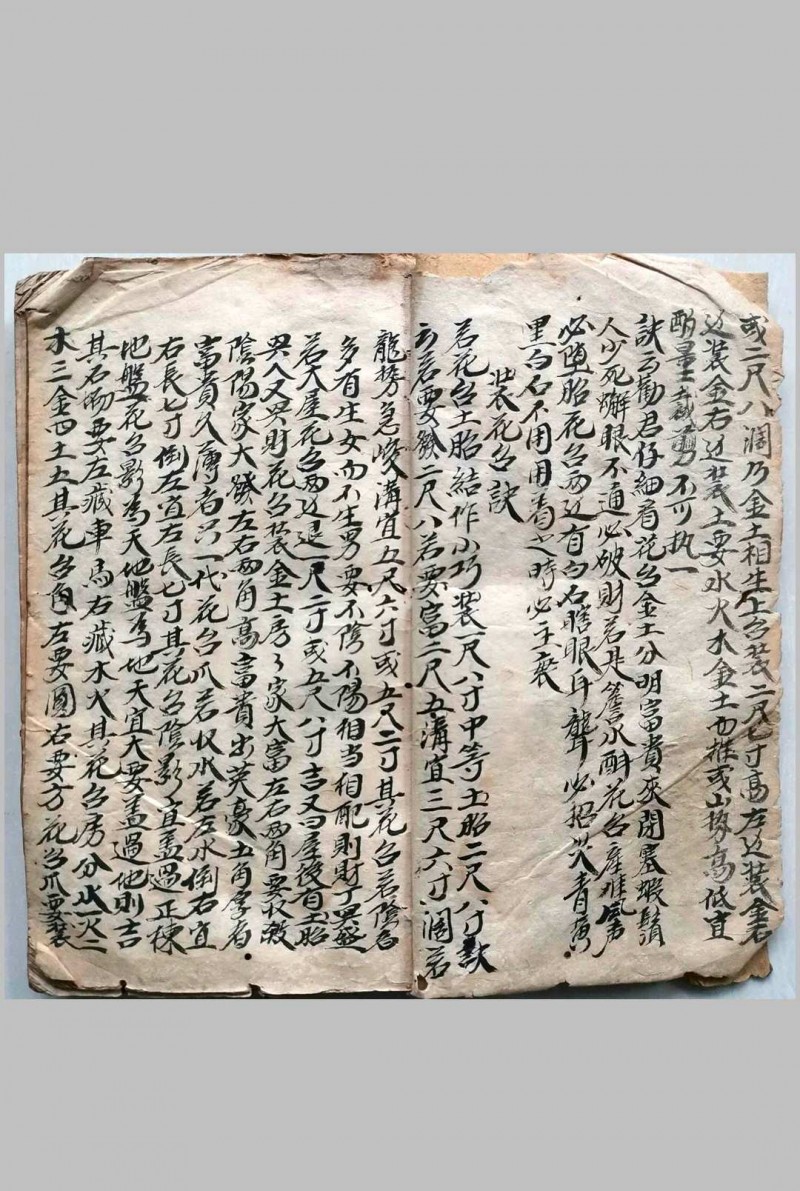 或二尺八濶乃金土相生上台装二尺七寸高左边装金右
边装金右边装土要水火木金土而推或山勢高低宜
酌量裁剪不可执一
訣云勸君仔細看花台金土分明富貴灰閉塞蝦鬚
人少死蠏眼不通必破財若是簷水酙花台產难風声
必堕胎花台两边有白石瞎眼耳聾必招災青黄
黑白石不用用着之時必主衰
装花台訣
若花台土胎結作小巧装一尺八寸中等土胎二尺八寸訣
云若要發二尺八若要富二尺五溝宜三尺六寸濶若
龍勢急峻溝宜五尺六寸或五尺二寸其花台若陰多
多有生女而不生男要不陰不陽相当相配則財丁興盛
若大屋花台两边退一尺二寸或五尺八寸吉又曰屋後有土胎
興人又興财花台装金土房々家大富左右两角要收敛
陰陽家大發左右两角高富貴出英豪土角孚有
富貴久薄者只一代花台爪若收水若左水倒右宜
右長七寸倒左宜左長七寸其花台陰影宜盖過正棟
地盤花台影為天地盤為地天宜大要盖過地則吉
其石磡要左藏車馬右藏水火其花台房分水一火二
木三金四土五其花台角左要圓右要方花台爪要装